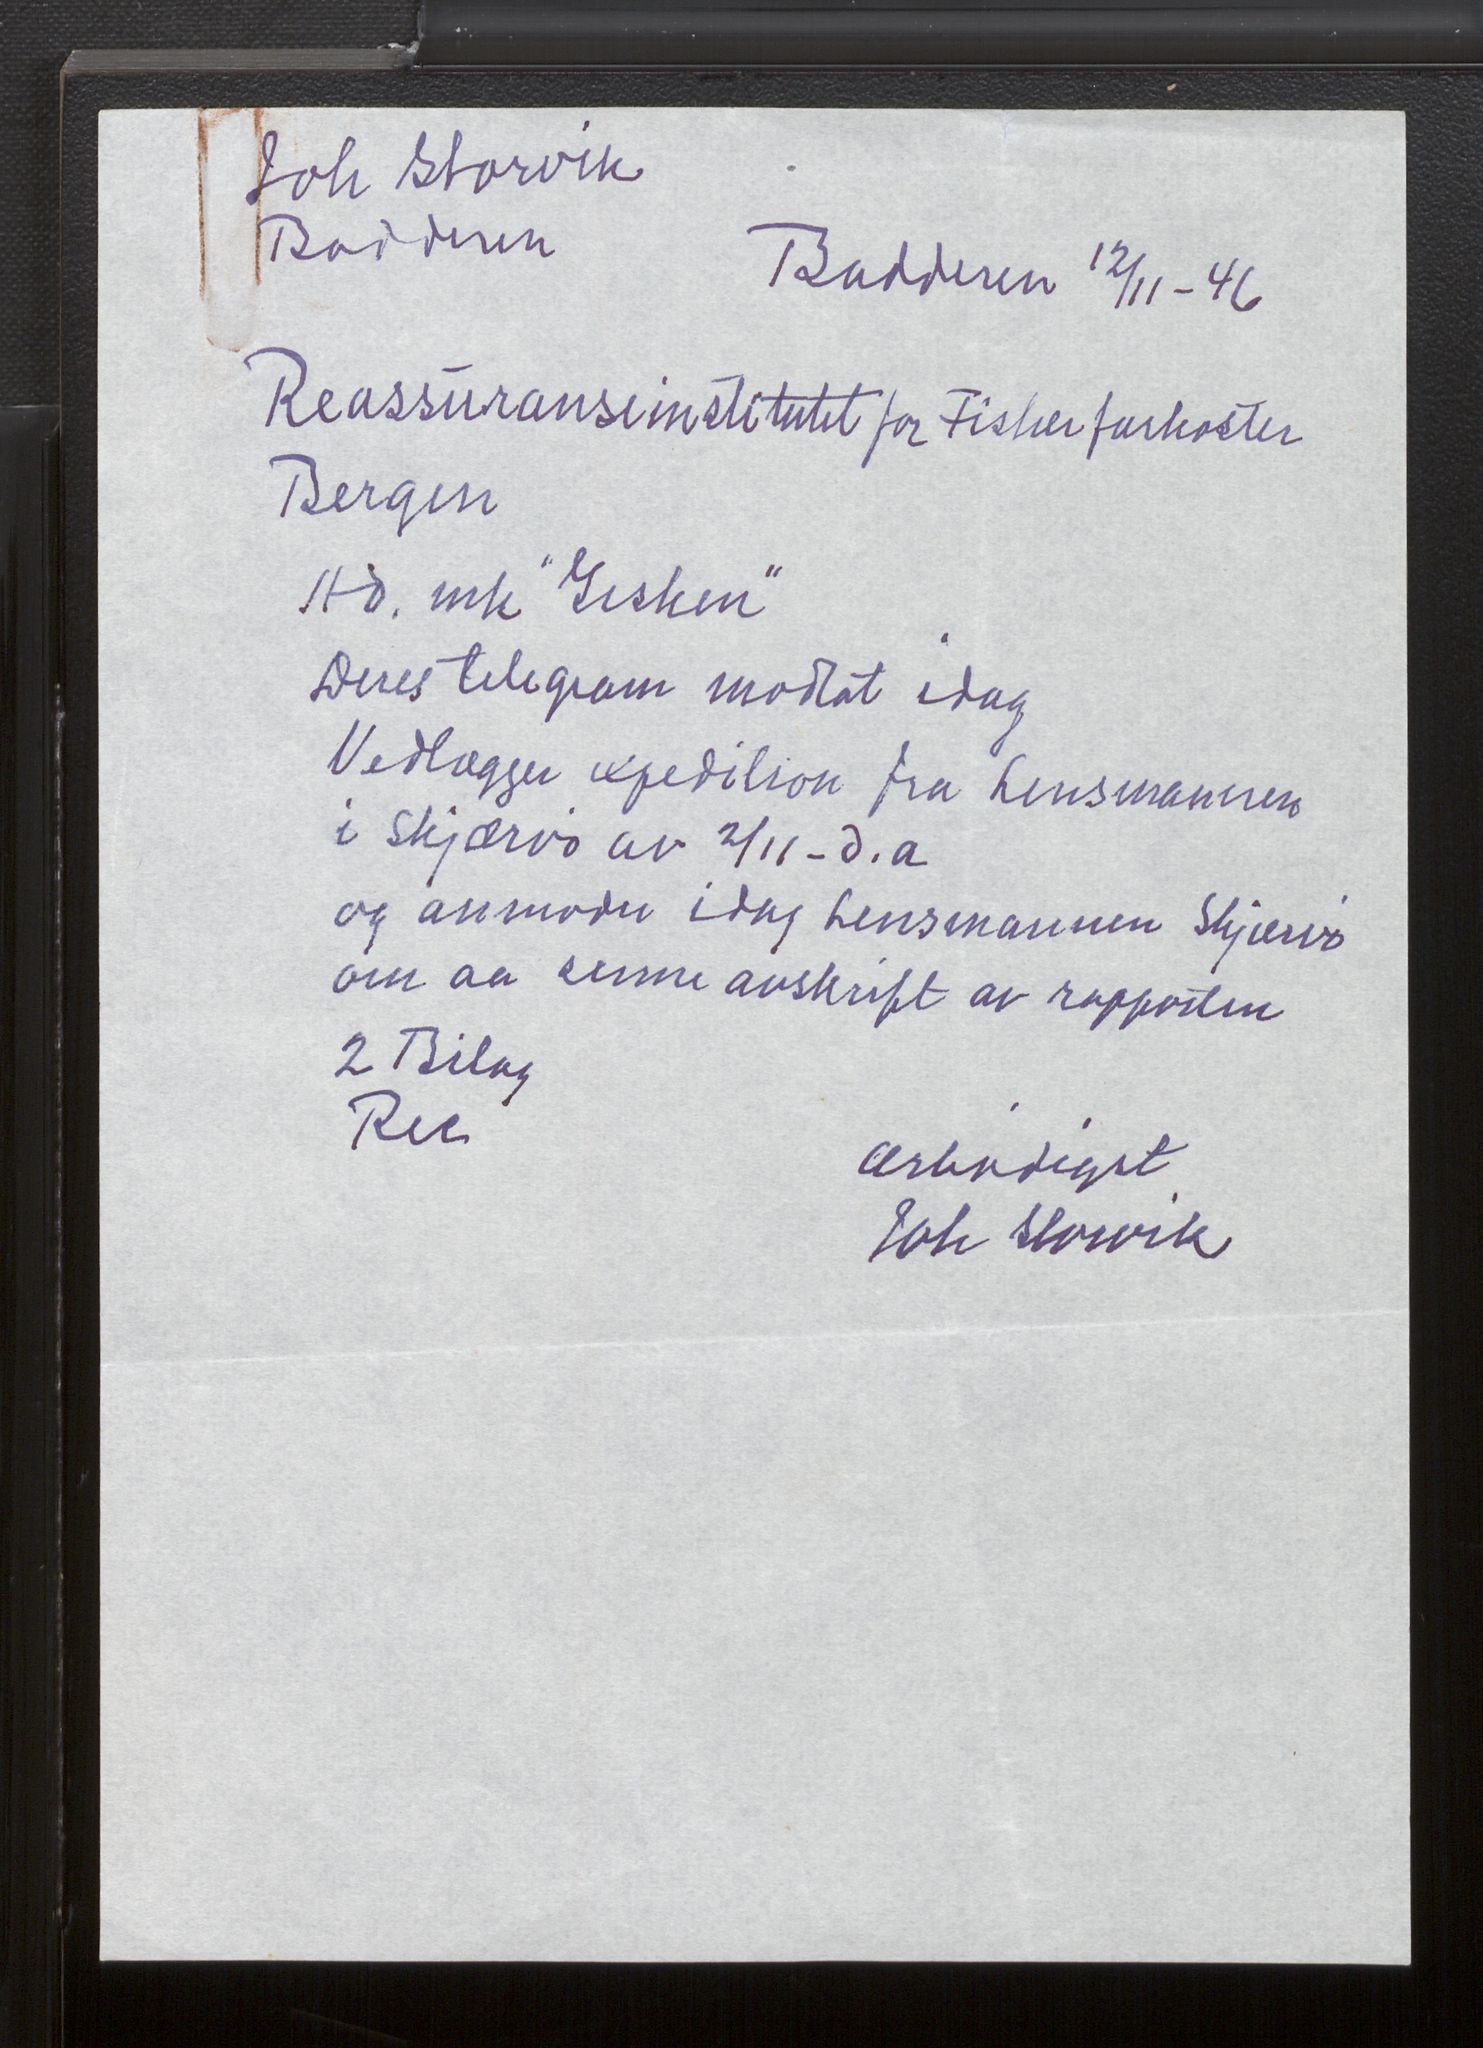 Joh Storvik
Badderen
Badderen 12/11-46
Reassuranseinstitutet for Fiskerfarkoster
Bergen
Hd. mk "Gisken"
Deres telegram modtat idag
Vedlægger expedision fra Lensmannen
i Skjærvö av 2/11-d.a
og anmoder idag Lensmannen Skjærvö
om aa senne avskrift av rapporten
2 Bilag
Rec
ærbödigst
Joh Storvik